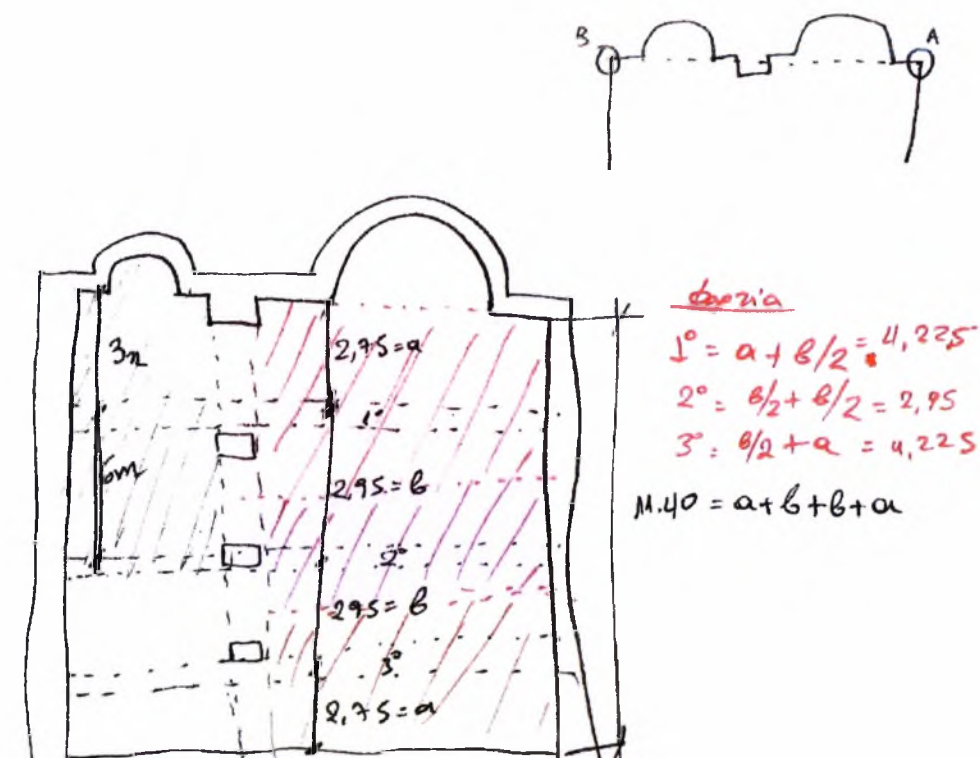 B
A
3m
2,75=a
1°
6m
2,95=b
2°
295=b
3°
2,75=a
φορτία
1° = a + b/2 = 4,225
2° = b/2 + b/2 = 2,95
3° = b/2 + a = 4,225
11.40 = a+b+b+a